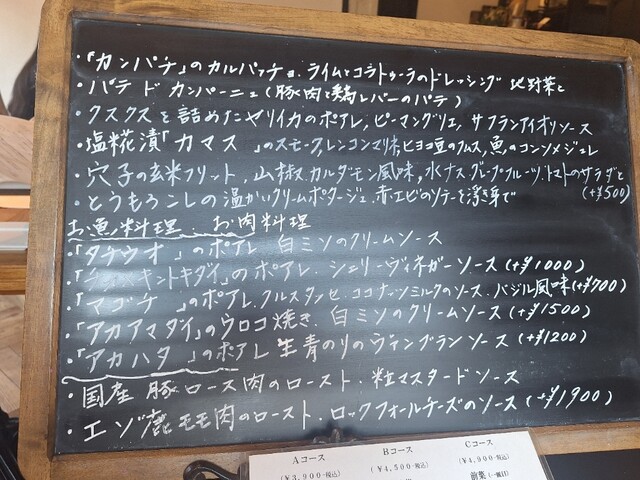 ・「カンパチ」のカルパッチョ.ライムとコラトゥーラのドレッシング 地野菜と
・パテ ド カンパーニュ(豚肉と鶏レバーのパテ)
・クスクスを詰めたヤリイカのポアレ,ピーマングリエ,サフランアイオリソース
・塩糀漬「カマス 」のスモーク,レンコンマリネ,ヒヨコ豆のフムス,魚のコンソメジュレ
・穴子の玄米フリット,山椒,カルダモン風味,水ナス,グレープフルーツ,トマトのサラダと(+¥500)
・とうもろこしの温かいクリームポタージュ.赤エビのソテーを浮き身で
お魚料理、お肉料理
・「タチウオ 」のポアレ 白ミソのクリームソース
キントキダイ」のポアレ.シェリーヴィネガーソース(+¥1000)
・「マゴチ 」のポアレ.クルスタッセ.ココナッツミルクのソース.バジル風味(+¥700)
・「アカアマダイ」のウロコ焼き.白ミソのクリームソース(+¥1500)
・「アカハタ 」のポアレ 生青のりのヴァンブランソース(+¥1200)
・国産 豚ロース肉のロースト.粒マスタードソース
・エゾ鹿モモ肉のロースト.ロックフォールチーズのソース(+¥1900)
Aコース Bコース Cコース
(¥3,900-税込) (¥4,500-税込) (¥4,900-税込)
前菜(一皿目)